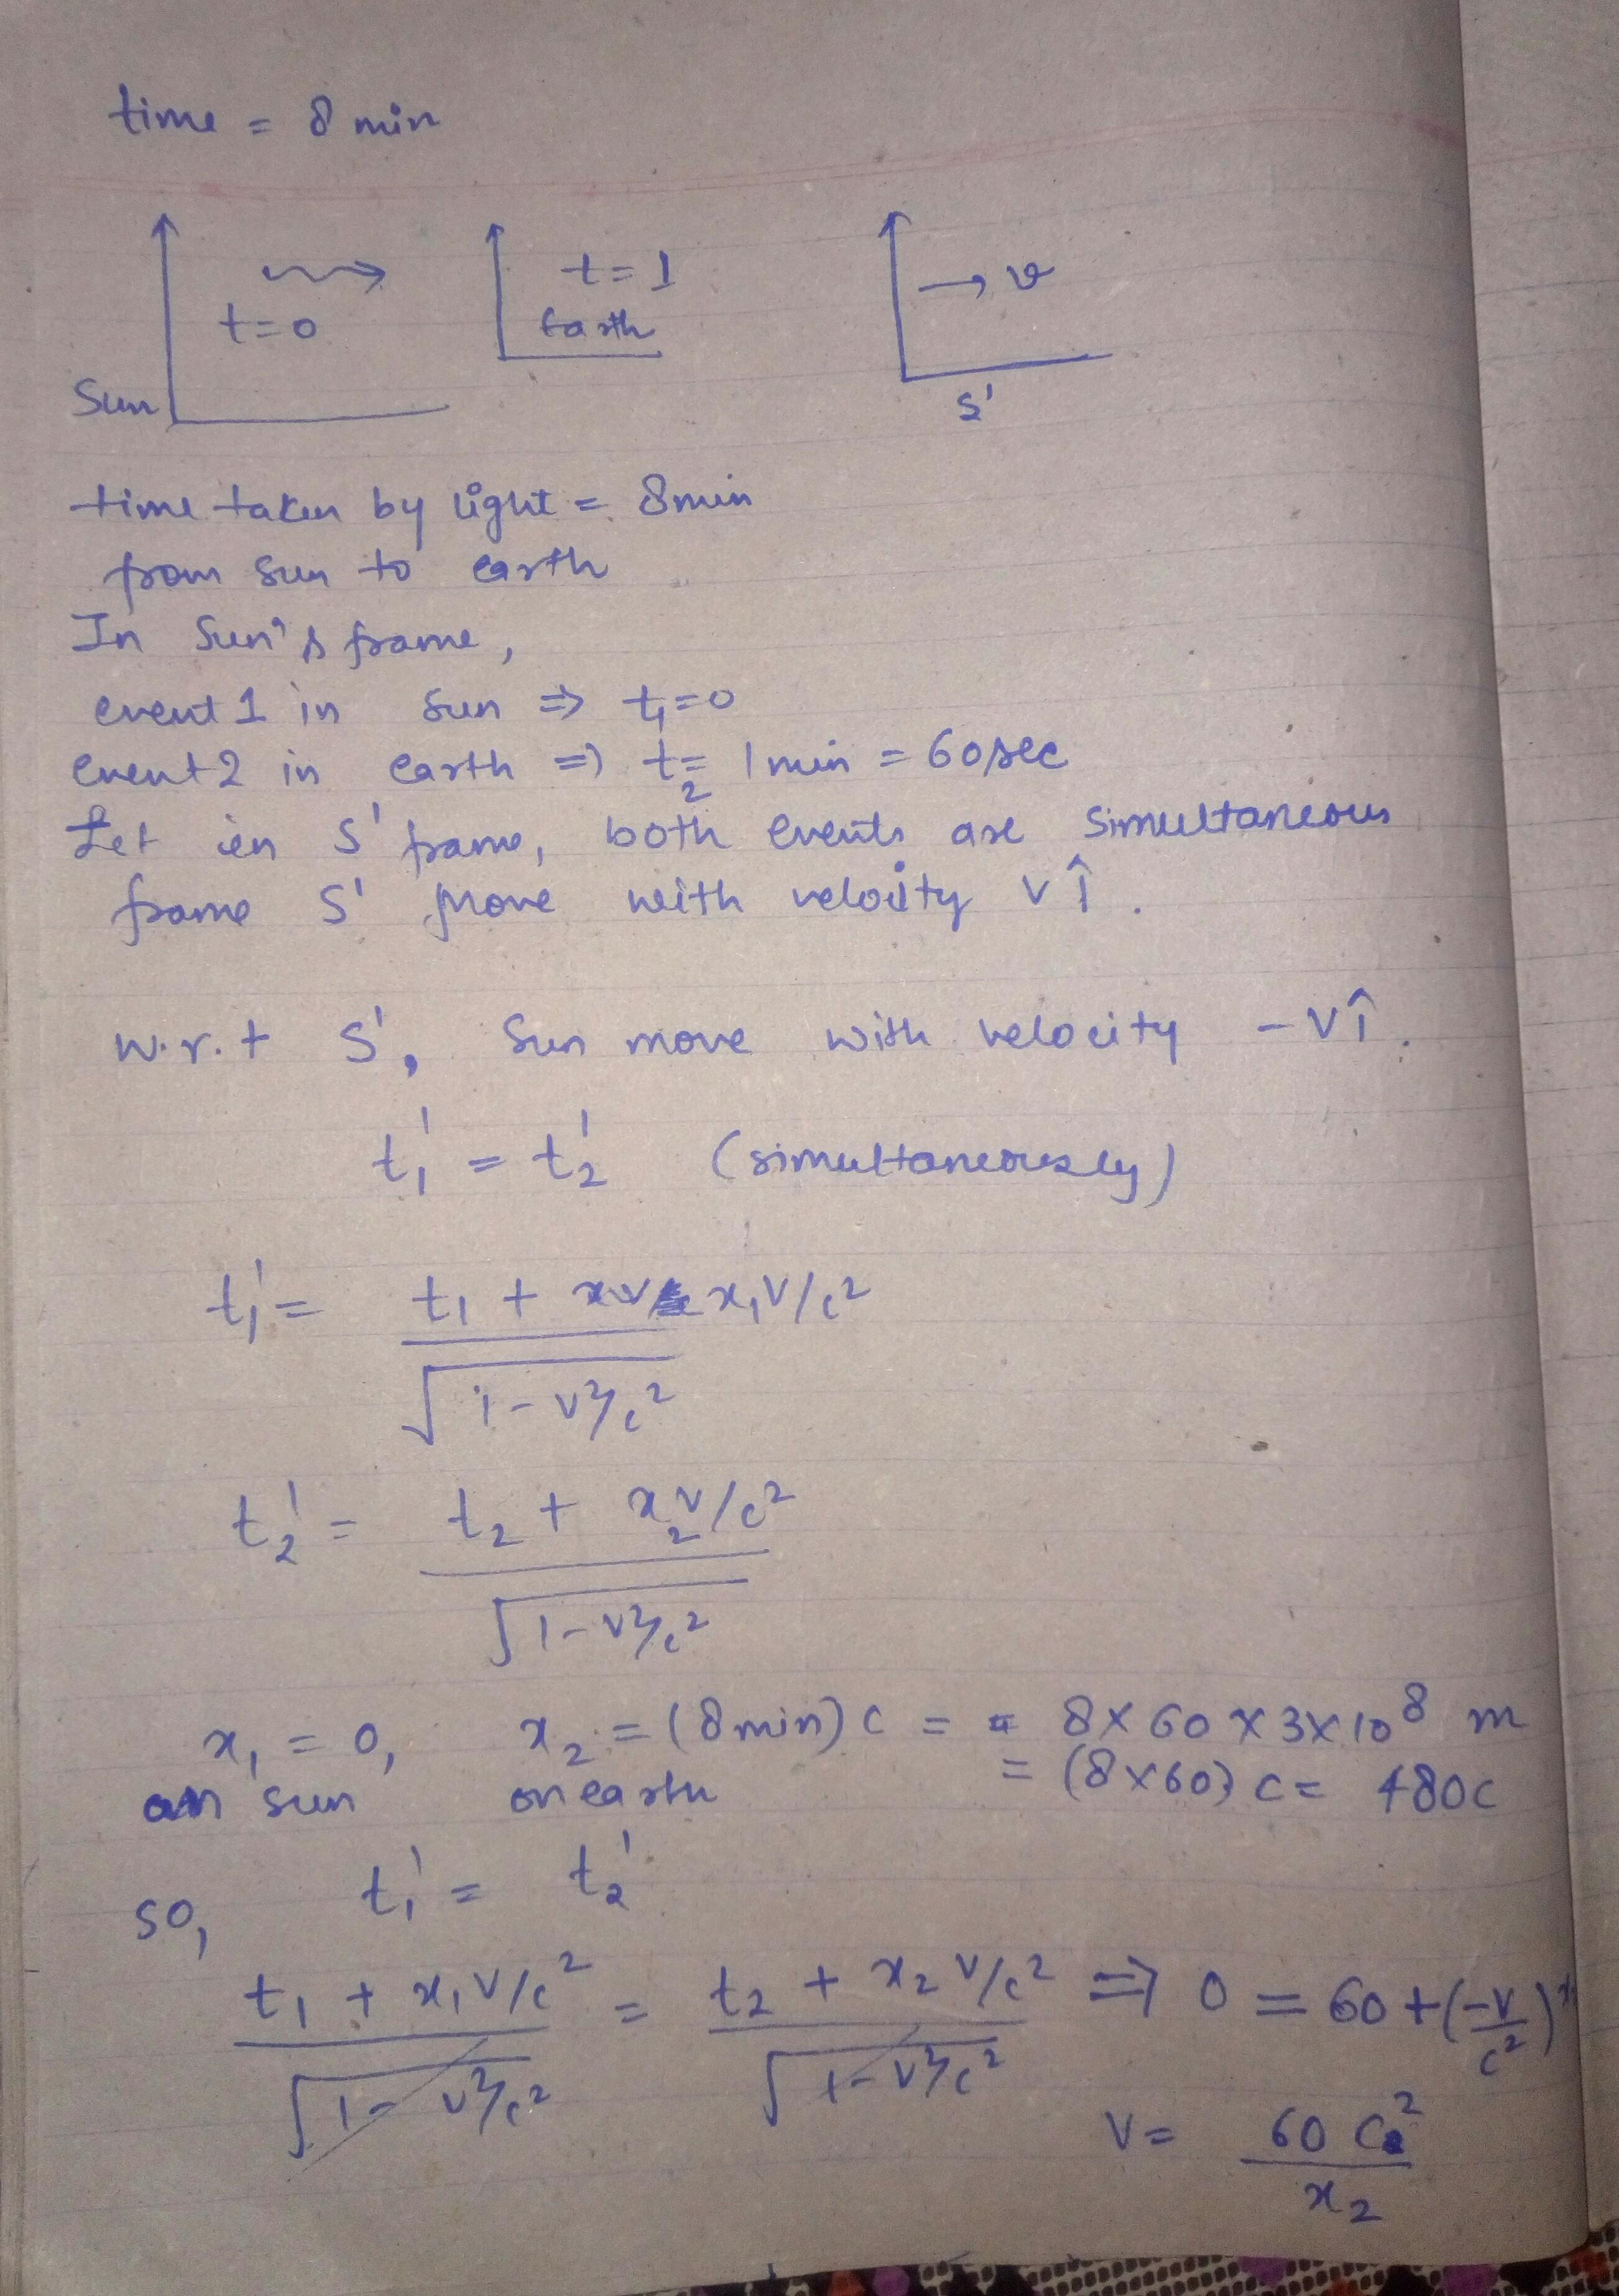 time = 8 min
t=0
Sun
t=1
Earth
→ v
S'
time taken by light = 8min
from sun to earth
In Sun's frame,
event 1 in sun ⇒ t₁=0
event 2 in earth ⇒ t₂= 1 min = 60sec
Let in S' frame, both events are simultaneous
frame S' move with velocity v î .
w.r.t S', Sun move with velocity - v î .
t₁' = t₂' (simultaneously)
t₁' = t₁ + x₁V/c²
√1-v²/c²
t₂' = t₂ + x₂V/c²
√1-v²/c²
x₁ = 0, x₂ = (8min) c = = 8×60×3×10⁸ m
on sun on earth = (8×60) c = 480c
so, t₁' = t₂'
t₁ + x₁V/c² = t₂ + x₂V/c² ⇒ 0 = 60+(-v/c²)
√1-v²/c² √1-v²/c²
V= 60 c²
x₂